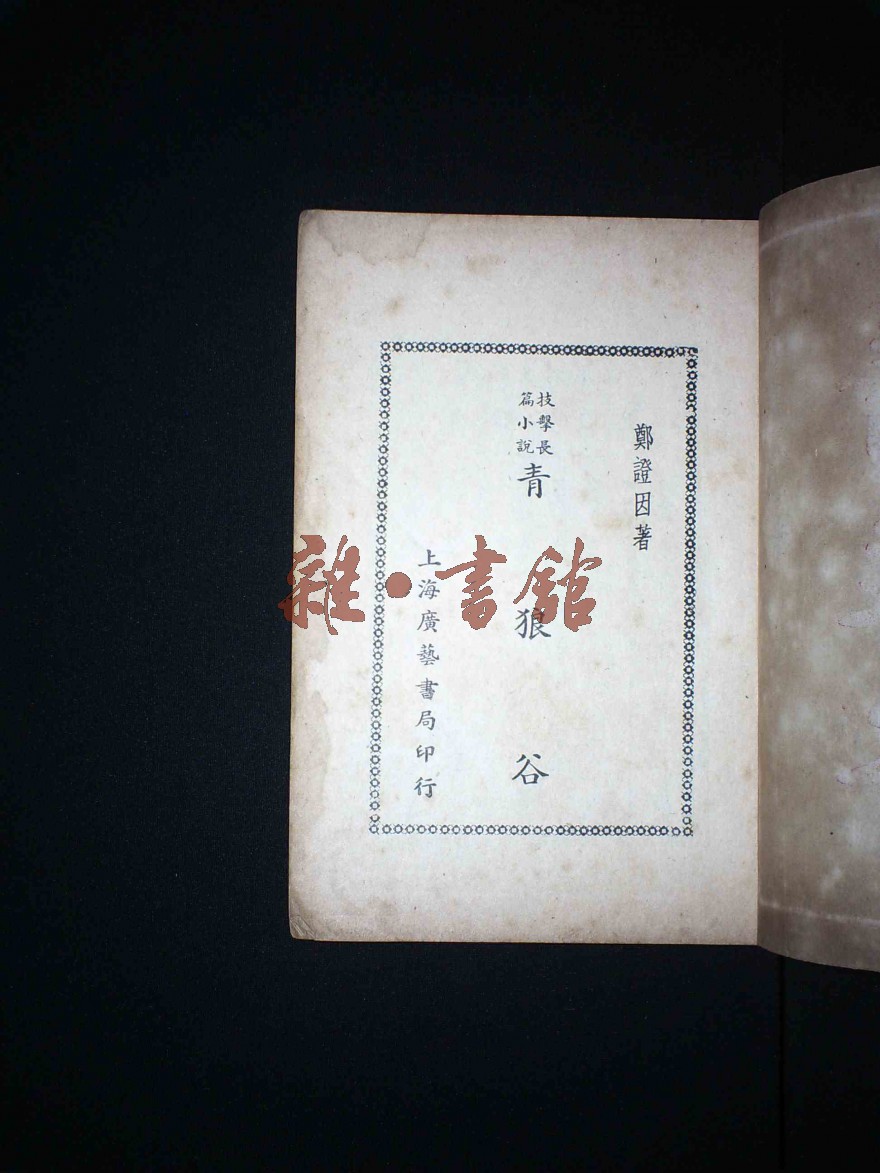 鄭證因著
技擊長
篇小說
青狼谷
上海廣藝書局印行
雜·書館